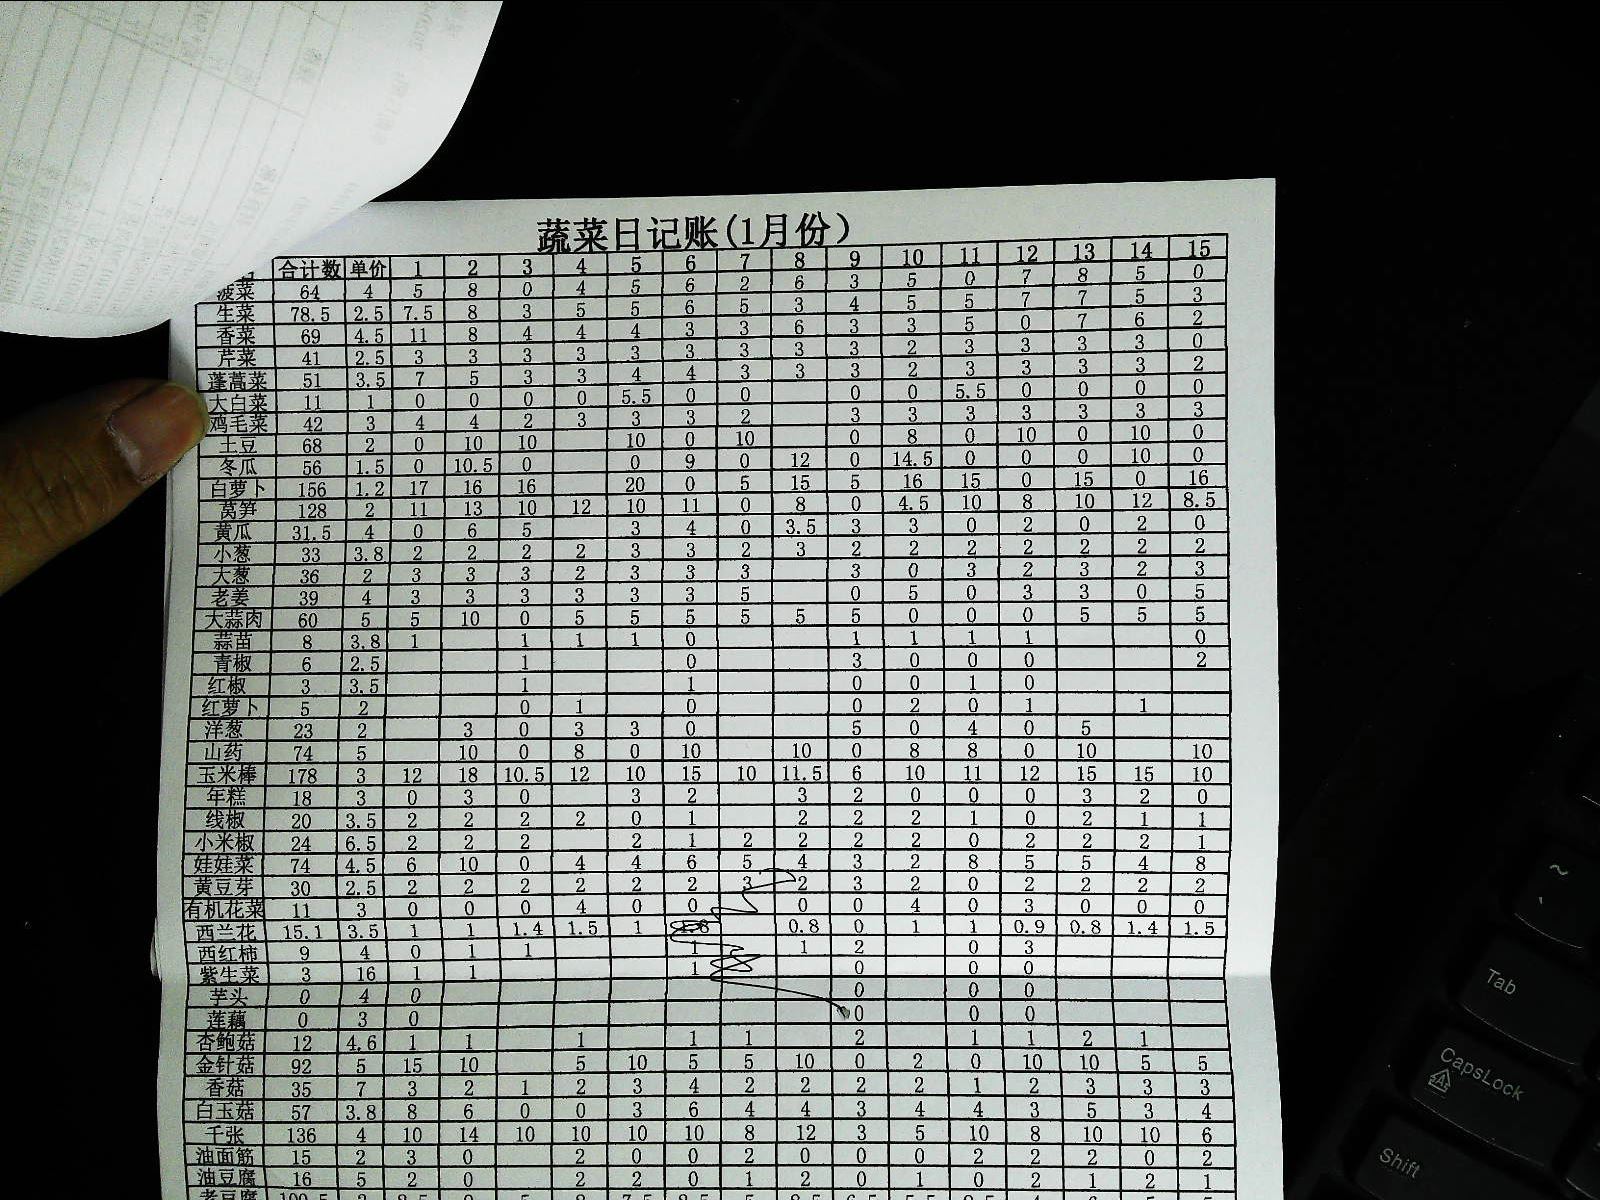 蔬菜日记账(1月份)
合计数 单价 1 2 3 4 5 6 7 8 9 10 11 12 13 14 15
菠菜 64 4 5 8 0 4 5 6 2 6 3 5 0 7 8 5 0
生菜 78.5 2.5 7.5 8 3 5 5 6 5 3 4 5 5 7 7 5 3
香菜 69 4.5 11 8 4 4 4 3 3 6 3 3 5 0 7 6 2
芹菜 41 2.5 3 3 3 3 3 3 3 3 3 2 3 3 3 3 0
蓬蒿菜 51 3.5 7 5 3 3 4 4 3 3 3 2 3 3 3 3 2
大白菜 11 1 0 0 0 0 5.5 0 0 0 0 5.5 0 0 0 0
鸡毛菜 42 3 4 4 2 3 3 3 2 3 3 3 3 3 3 3
土豆 68 2 0 10 10 10 0 10 0 8 0 10 0 10 0
冬瓜 56 1.5 0 10.5 0 0 9 0 12 0 14.5 0 0 0 10 0
白萝卜 156 1.2 17 16 16 20 0 5 15 5 16 15 0 15 0 16
莴笋 128 2 11 13 10 12 10 11 0 8 0 4.5 10 8 10 12 8.5
黄瓜 31.5 4 0 6 5 3 4 0 3.5 3 3 0 2 0 2 0
小葱 33 3.8 2 2 2 2 3 3 2 3 2 2 2 2 2 2 2
大葱 36 2 3 3 3 2 3 3 3 3 0 3 2 3 2 3
老姜 39 4 3 3 3 3 3 3 5 0 5 0 3 3 0 5
大蒜肉 60 5 5 10 0 5 5 5 5 5 5 0 0 0 5 5 5
蒜苗 8 3.8 1 1 1 1 0 1 1 1 1 0
青椒 6 2.5 1 0 3 0 0 0 2
红椒 3 3.5 1 1 0 0 1 0
红萝卜 5 2 0 1 0 0 2 0 1 1
洋葱 23 2 3 0 3 3 0 5 0 4 0 5
山药 74 5 10 0 8 0 10 10 0 8 8 0 10 10
玉米棒 178 3 12 18 10.5 12 10 15 10 11.5 6 10 11 12 15 15 10
年糕 18 3 0 3 0 3 2 3 2 0 0 0 3 2 0
线椒 20 3.5 2 2 2 2 0 1 2 2 2 1 0 2 1 1
小米椒 24 6.5 2 2 2 2 1 2 2 2 2 0 2 2 2 1
娃娃菜 74 4.5 6 10 0 4 4 6 5 4 3 2 8 5 5 4 8
黄豆芽 30 2.5 2 2 2 2 2 2 3 2 3 2 0 2 2 2 2
有机花菜 11 3 0 0 0 4 0 0 0 0 4 0 3 0 0 0
西兰花 15.1 3.5 1 1 1.4 1.5 1 0.8 0 1 1 0.9 0.8 1.4 1.5
西红柿 9 4 0 1 1 1 1 2 0 3
紫生菜 3 16 1 1 1 0 0 0
芋头 0 4 0 0 0 0
莲藕 0 3 0 0 0 0
杏鲍菇 12 4.6 1 1 1 1 1 2 1 1 2 1
金针菇 92 5 15 10 5 10 5 5 10 0 2 0 10 10 5 5
香菇 35 7 3 2 1 2 3 4 2 2 2 2 1 2 3 3 3
白玉菇 57 3.8 8 6 0 0 3 6 4 4 3 4 4 3 5 3 4
千张 136 4 10 14 10 10 10 10 8 12 3 5 10 8 10 10 6
油面筋 15 2 3 0 2 0 0 2 0 0 0 2 2 2 0 2
油豆腐 16 5 2 0 2 2 0 1 2 0 1 0 2 1 2 1
~
Tab
CapsLock
Shift